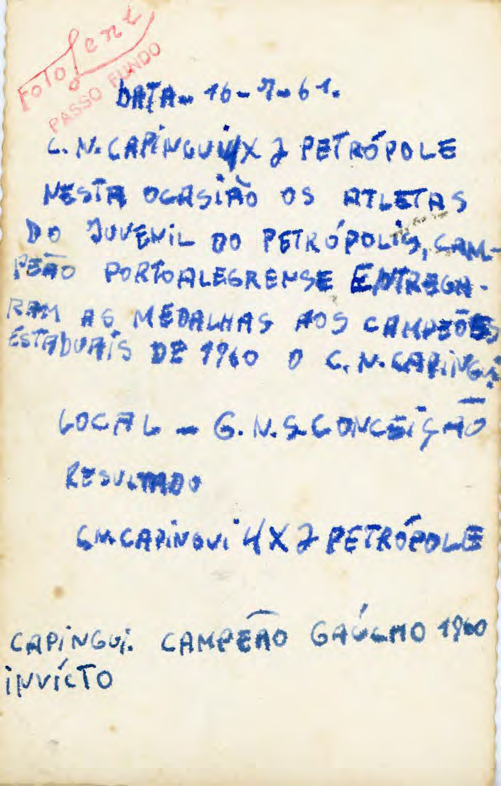 Foto Jeni
PASSO FUNDO
DATA - 16-7-61.
C.N. CAPINGUI 4X2 PETRÓPOLE
NESTA OCASIÃO OS ATLETAS
DO JUVENIL DO PETRÓPOLIS, CAM-
PEÃO PORTOALEGRENSE ENTREGA-
RAM AS MEDALHAS AOS CAMPEÕES
ESTADUAIS DE 1960 O C.N. CAPINGUI
LOCAL - G.N.S. CONCEIÇÃO
RESULTADO
C.N. CAPINGUI 4X2 PETRÓPOLE
CAPINGUI. CAMPEÃO GAÚCHO 1960
INVÍCTO